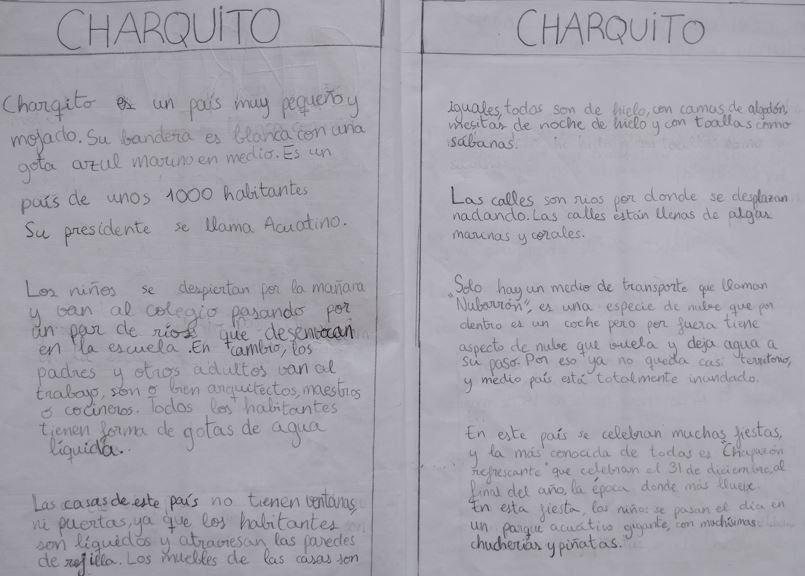 CHARQUITO
Charqito es un país muy pequeño y
mojado. Su bandera es blanca con una
gota azul marino en medio. Es un
país de unos 1000 habitantes
Su presidente se llama Acuatino.
Los niños se despiertan por la mañana
y van al colegio pasando por
un par de ríos que desembocan
en la escuela. En cambio, los
padres y otros adultos van al
trabajo, son o bien arquitectos, maestros
o cocineros. Todos los habitantes
tienen forma de gotas de agua
líquida.
Las casas de este país no tienen ventanas
ni puertas, ya que los habitantes
son líquidos y atraviesan las paredes
de rejilla. Los muebles de las casas son
CHARQUITO
iguales, todas son de hielo, con camas de algodón,
mesitas de noche de hielo y con toallas como
sábanas.
Las calles son rios por donde se desplazan
nadando. Las calles están llenas de algas
marinas y corales.
Solo hay un medio de transporte que llaman
"Nubarrón", es una especie de nube que por
dentro es un coche pero por fuera tiene
aspecto de nube que vuela y deja agua a
su paso. Por eso ya no queda casi territorio,
y medio país está totalmente inundado.
En este país se celebran muchas fiestas,
y la más conocida de todas es "Chaparrón
refrescante" que celebran el 31 de diciembre, al
final del año, la época donde más llueve.
En esta fiesta, los niños se pasan el día en
un parque acuático gigante, con muchísimas
chucherías y piñatas.